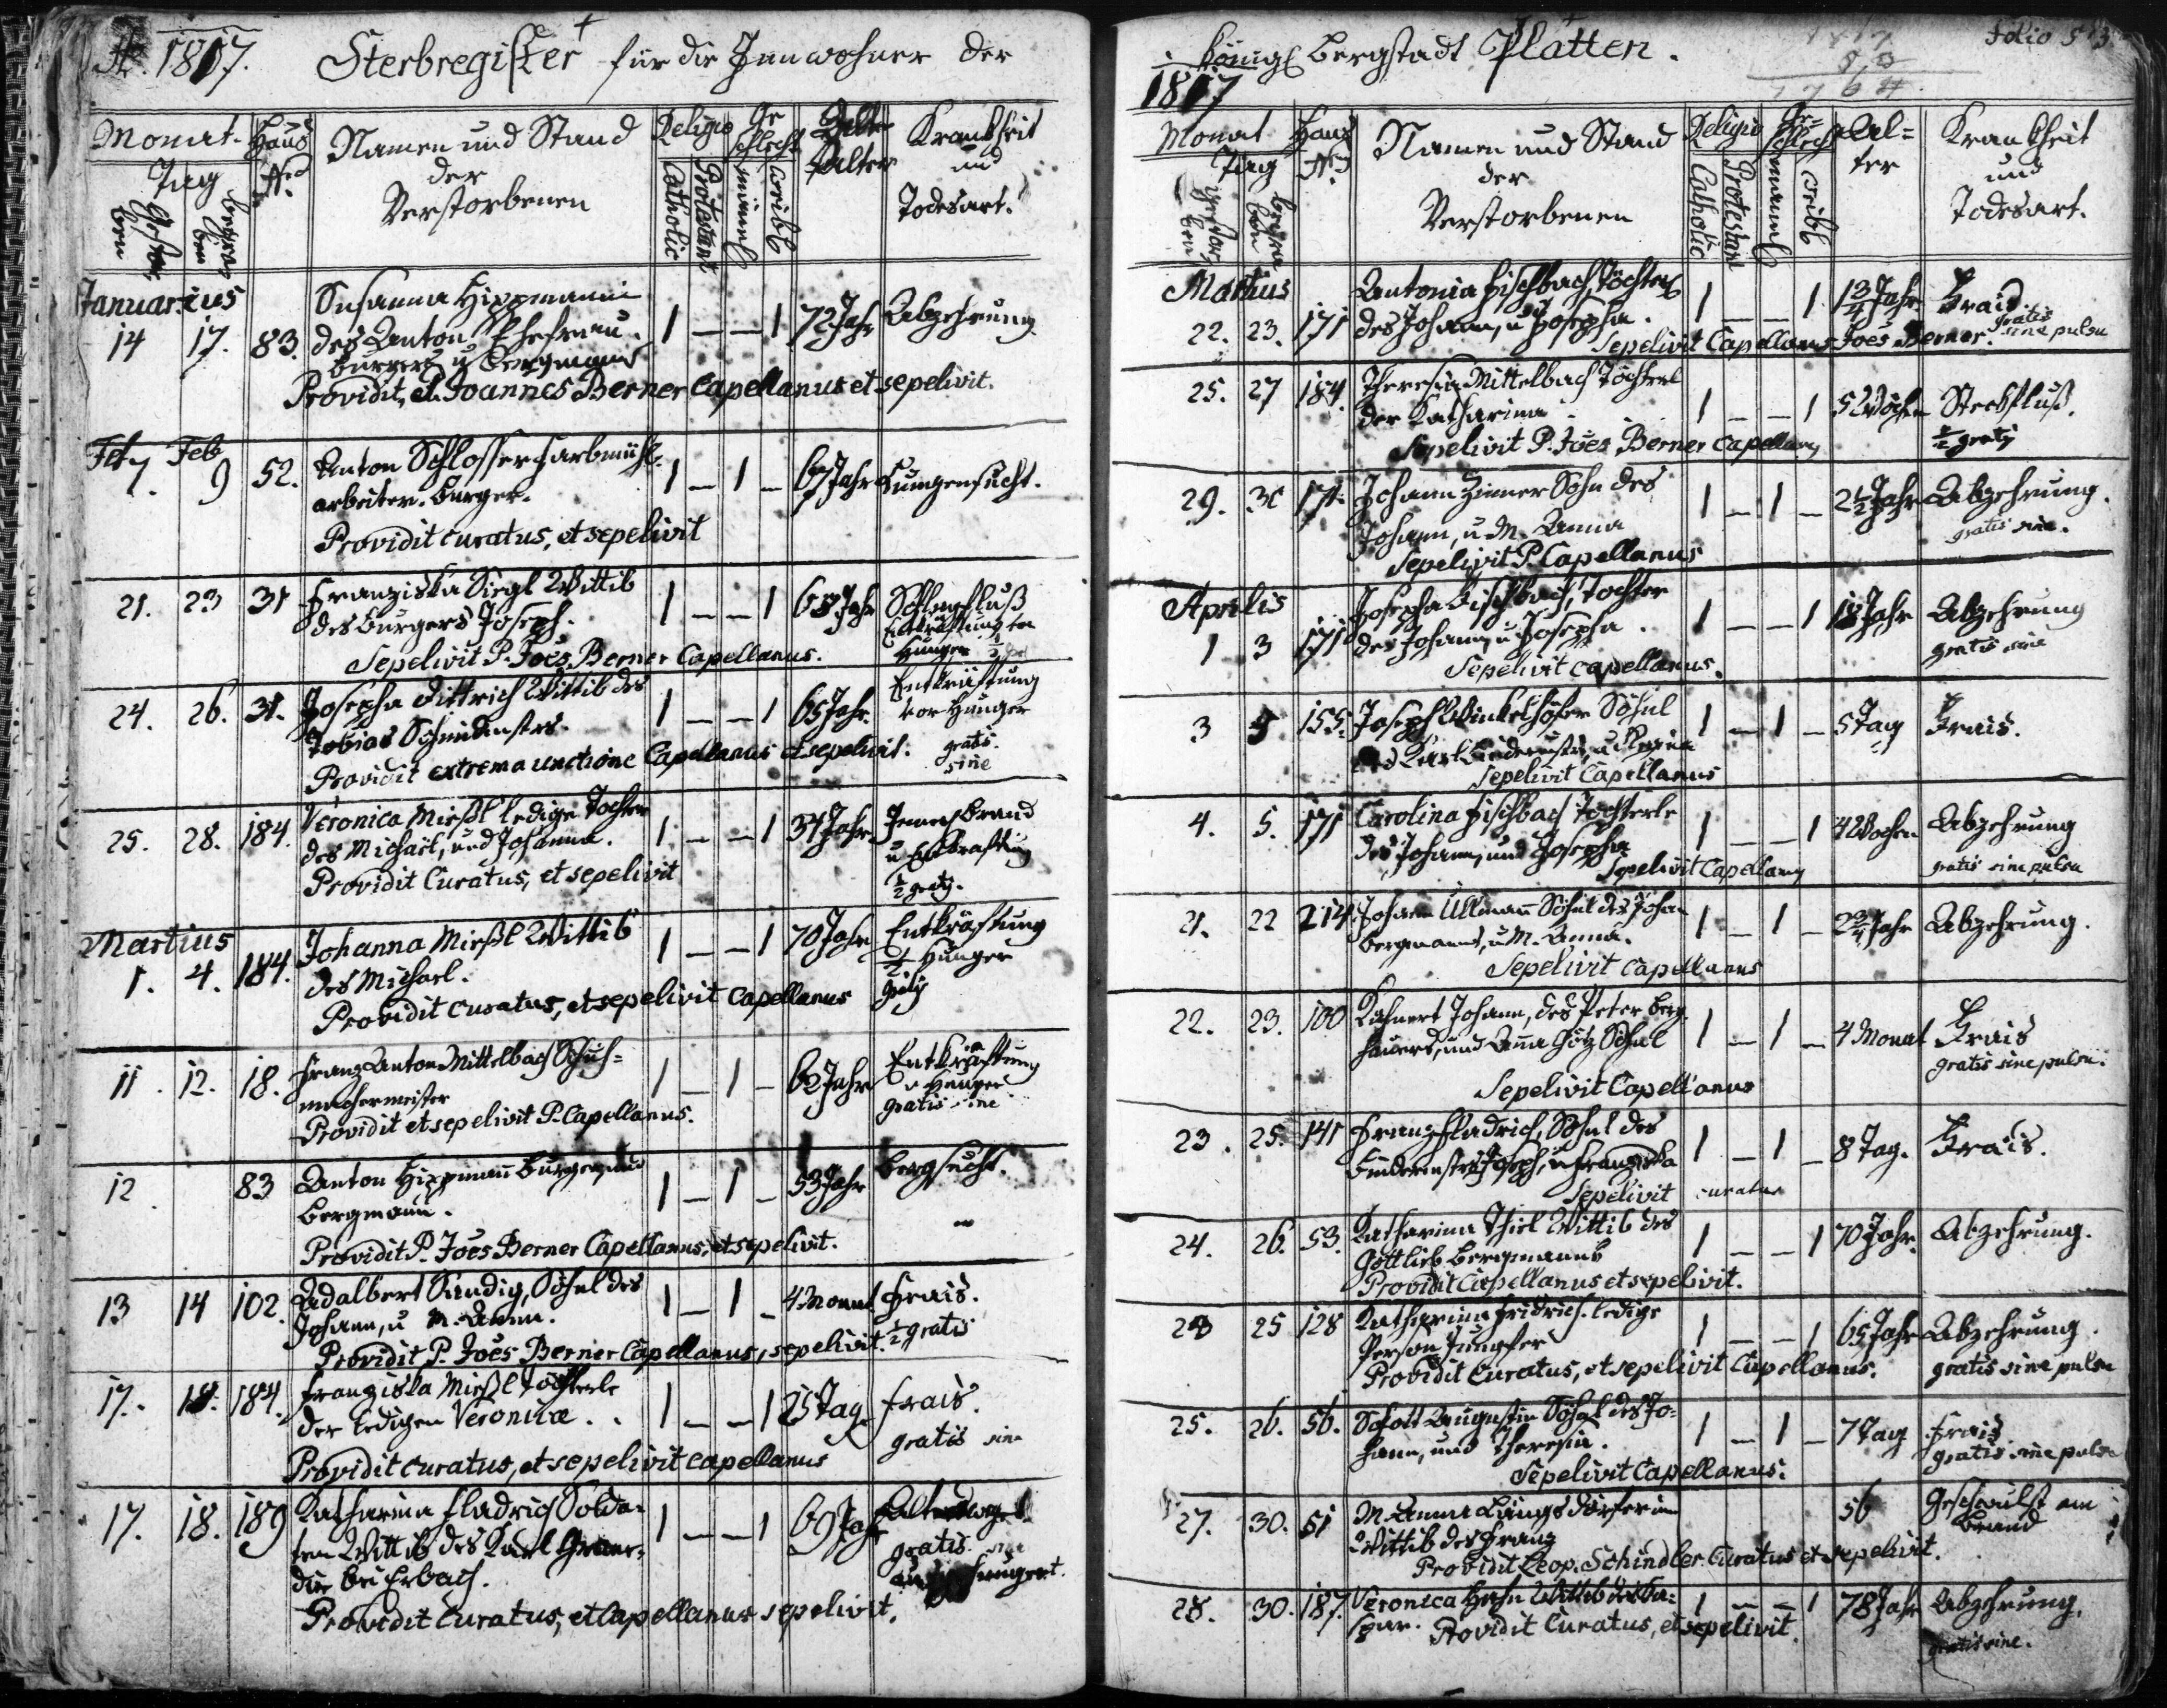 1817. Sterbregister für die Innwohner der
Monat. Haus Namen und Stand Religio Geschlecht Alter Krankheit
Tag Nro. der und
Verstorbenen Catholic Protestant männl weibl Todesart.
Gestorben begraben
Januarius Susanna Hippmanin
14 17. 83. des Anton Ehefrau 1 — — 1 72 Jahr Abzehrung
burgers u Bergmans
Providit, et Joannes Berner Capellanus et sepelivit.
Feb
7. 9 52. Anton Schlosser farbmühl- 1 — 1 — 67 Jahr Lungensucht.
arbeiter. burger.
Providit curatus, et sepelivit
21. 23 31 Franziska Siegl Wittib 1 — — 1 68 Jahr Schlagfluß
des burgers Joseph. Entkräftung
Hunger
Sepelivit P. Joës Berner Capellanus.
24. 26. 31. Josepha Dittrich Wittib des 1 — — 1 65 Jahr. Entkräftung
Tobias Schneiders vor Hunger
Providit extrema unctione Capellanus et sepelivit. gratis.
sine
25. 28. 184. Veronica Mießl ledige Tochter 1 — — 1 37 Jahr Innerbrand
des Michael, und Johanna. u Entkräftung
Providit Curatus, et sepelivit ½ gratis.
Martius
1. 4. 184. Johanna Mießl Wittib 1 — — 1 70 Jahr Entkräftung
des Michael. Hunger
Providit curatus, et sepelivit capellanus
11. 12. 18. Franz Anton Mittelbach Schuh= 1 — 1 — 62 Jahr Entkräftung
machermeister v Hunger
gratis sine
Providit et sepelivit P. Capellanus.
12 83 Anton Hippmann burger, und 1 — 1 — 53 Jahr bergsucht.
bergmann.
Providit P. Joës Berner Capellanus, et sepelivit.
13 14 102. Adalbert Sandig, Söhnl des 1 — 1 — 4 Monat Frais.
Johann, u M. Anna. ½ gratis
Providit P. Joës Berner Capellanus, sepelivit.
17. 18. 184. Franziska Mießl Töchterle 1 — — 1 25 Tag Frais.
der ledigen Veronicæ. gratis sine
Providit curatus, et sepelivit capellanus
17. 18. 189 Katharina Fladrich Solda= 1 — — 1 69 Jahr
ten Wittib des Karl gratis sine
bei Erbach.
Providit Curatus, et Capellanus sepelivit.
königl bergstadt Platten. Folio 513
1817
Monat Haus Namen und Stand Religio Geschlecht Al= Krankheit
Tag Nro der ter und
Verstorbenen Catholic Protestant männl weibl Todesart.
gestorben begraben
Martius Antonia Fischbach, Töchterl
22. 23. 171 des Johann, u Josepha. 1 — — 1 1¾ Jahr Frais
gratis
sine pulsu
Sepelivit Capellanus Joës Berner.
25. 27 184. Theresia Mittelbach Töchterl 1 — — 1 5 Wochen Steckfluß.
der Katharina ½ gratis
Sepelivit P. Joës Berner Capellang
29. 30 171. Johann Zinner Sohn des 1 — 1 — 2½ Jahr Abzehrung.
Johann, u M. Anna gratis sine.
Sepelivit P. Capellanus
Aprilis Josepha Fischbach, Tochter
1 3 171 des Johann, u Josepha. 1 — — 1 18 Jahr Abzehrung
gratis sine
Sepelivit capellanus.
3 5 155. Joseph Winkelhöfer Söhnl 1 — 1 — 5 Tag Frais.
des Karl
Sepelivit Capellanus
4. 5. 171 Carolina Fischbach Töchterle 1 — — 1 4 Wochen Abzehrung
des Johann, und Josepha gratis sine pulsu
Sepelivit Capellang
21. 22 214. Johann Ullmann Söhnl des Johan 1 — 1 — 2¾ Jahr Abzehrung.
bergmanns, u M. Anna.
Sepelivit Capellanus
22. 23. 100 Kahnert Johann, des Peter berg= 1 — 1 — 4 Monat Frais
hauers, und Anna Götz Söhnl gratis sine pulsu.
Sepelivit Capellanus
23. 25. 141 Franz Fladrich, Söhnl des 1 — 1 — 8 Tag. Frais.
Joseph, u Franziska
Sepelivit curatus
24. 26. 53. Katharina Thiel Wittib des 1 — — 1 70 Jahr. Abzehrung.
Gottlieb bergmanns
Providit Capellanus et sepelivit.
24 25 128 Katharina Fridrich. ledige 1 — — 1 65 Jahr Abzehrung.
Person Jungfer gratis sine pulsu
Providit Curatus, et sepelivit Capellanus.
25. 26. 56. Schott Augustin Söhnl des Jo= 1 — 1 — 7 Tag Frais
hann, und Theresia. gratis sine pulsu
Sepelivit Capellanus.
27. 30. 51 M. Anna Längsdörferin 56 Geschwulst am
Wittib des Franz brand
Providit Leop. Schindler Curatus et sepelivit.
28. 30. 187. Veronica Hahn Wittib des Ca= 1 — — 1 78 Jahr Abzehrung.
spar. Providit Curatus, et sepelivit. gratis sine.